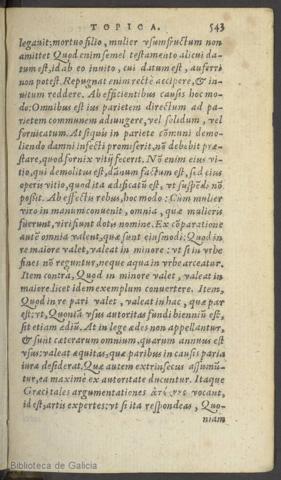 TOPICA. 543
legauit: mortuo filio, mulier vsumfructum non
amittet Quod enim semel testamento alicui da-
tum est, id ab eo inuito, cui datum est, auferri
non potest. Repugnat enim rectè accipere, & in-
uitum reddere. Ab efficientibus causis hoc mo-
do: Omnibus est ius parietem directum ad pa-
rietem communem adiungere, vel solidum, vel
fornicatum. At si quis in pariete cõmuni demo-
liendo damni infecti promiserit, nõ debebit præ-
stare, quod fornix vitij fecerit. Nõ enim eius vi-
tio, qui demolitus est, dãnum factum est, sed eius
operis vitio, quod ita ædificatũ est, vt suspẽdi nõ
possit. Ab effectis rebus, hoc modo: Cùm mulier
viro in manum conuenit, omnia, quæ mulieris
fuerunt, viri fiunt dotis nomine. Ex cõparatione
autẽ omnia valent, quæ sunt eiusmodi: Quod in
re maiore valet, valeat in minore: vt si in vrbe
fines nõ reguntur, neque aqua in vrbe arceatur.
Item contra, Quod in minore valet, valeat in
maiore. licet idem exemplum conuertere. Item,
Quod in re pari valet, valeat in hac, quæ par
est: vt, Quoniã vsus autoritas fundi biennũ est,
sit etiam ædiũ. At in lege ædes non appellantur,
& sunt cæterarum omnium, quarum annuus est
vsus: valeat æquitas, quæ paribus in causis paria
iura desiderat. Quæ autem extrinsecus assumũ-
tur, ea maximè ex autoritate ducuntur. Itaque
Græci tales argumentationes ἀτέχνους vocant,
id est, artis expertes: vt si ita respondeas, Quo-
niam
Biblioteca de Galicia